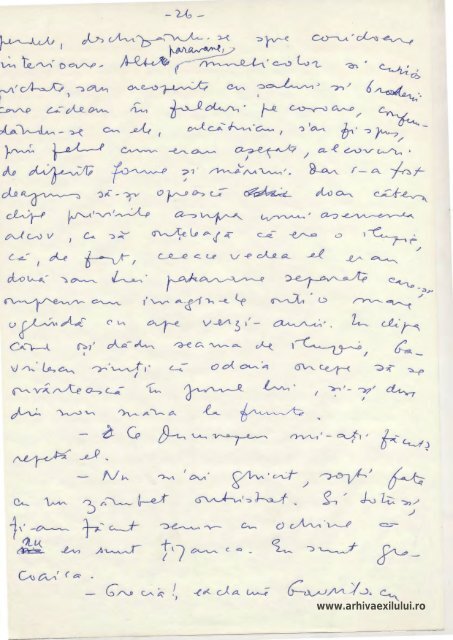 - 26 -
perdele, deschizându-se spre coridoare
paravane,
interioare. Altele, multicolor și curios
pictate, sau acoperite cu șaluri și broderii
care cădeau în falduri pe covoare, confun-
dându-se cu ele, alcătuiau, s'ar fi spus,
prin felul cum erau așezate, alcovuri
de diferite forme și mărimi. Dar i-a fost
deajuns să-și oprească doar câteva
clipe privirile asupra unui asemenea
alcov, ca să înțeleagă că era o iluzie,
că, de fapt, ceeace vedea el erau
două sau trei paravane separate care-și
împreunau imaginele într'o mare
oglindă cu ape verzi-aurii. În clipa
când își dădu seama de iluzie, Ga-
vrilescu simți că odaia începe să se
învârtească în jurul lui, și-și duse
din nou mâna la frunte.
- Ce Dumnezeu mi-ați făcut?
repetă el.
- Nu m'ai ghicit, șopti fata
cu un zâmbet întristat. Și totuși,
ți-am făcut semn cu ochiul că
nu eu sunt țiganca. Eu sunt gre-
coaica.
- Grecia!, exclamă Gavrilescu
www.arhivaexilului.ro